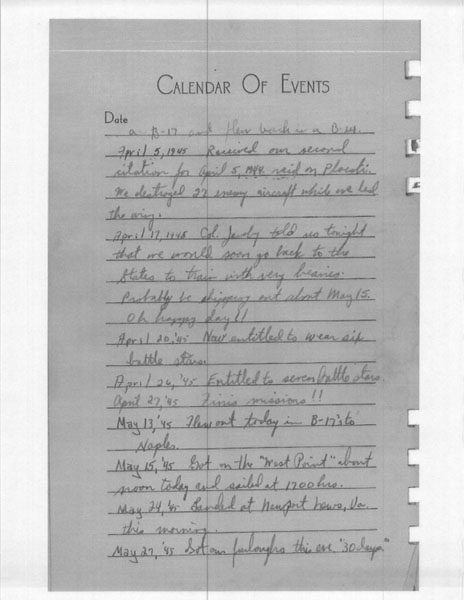 CALENDAR OF EVENTS
Date
a B-17 and flew back in a B-24.
April 5, 1945 Received our second
citation for April 5, 1944 raid on Ploesti.
We destroyed 27 enemy aircraft while we led
the wing.
April 17, 1945 Col. told us tonight
that we would soon go back to the
States to train with very heavies.
Probably be shipping out about May 15.
Oh happy day!!
April 20, '45 Now entitled to wear six
battle stars.
April 26, '45 Entitled to seven battle stars.
April 27, '45 Finis missions!!
May 13, '45 Flew out today in B-17's to
Naples.
May 15, '45 Got on the "West Point" about
noon today and sailed at 1700 hrs.
May 24, '45 Landed at Newport News, Va.
this morning.
May 27, '45 Got our furloughs this eve. "30 days"